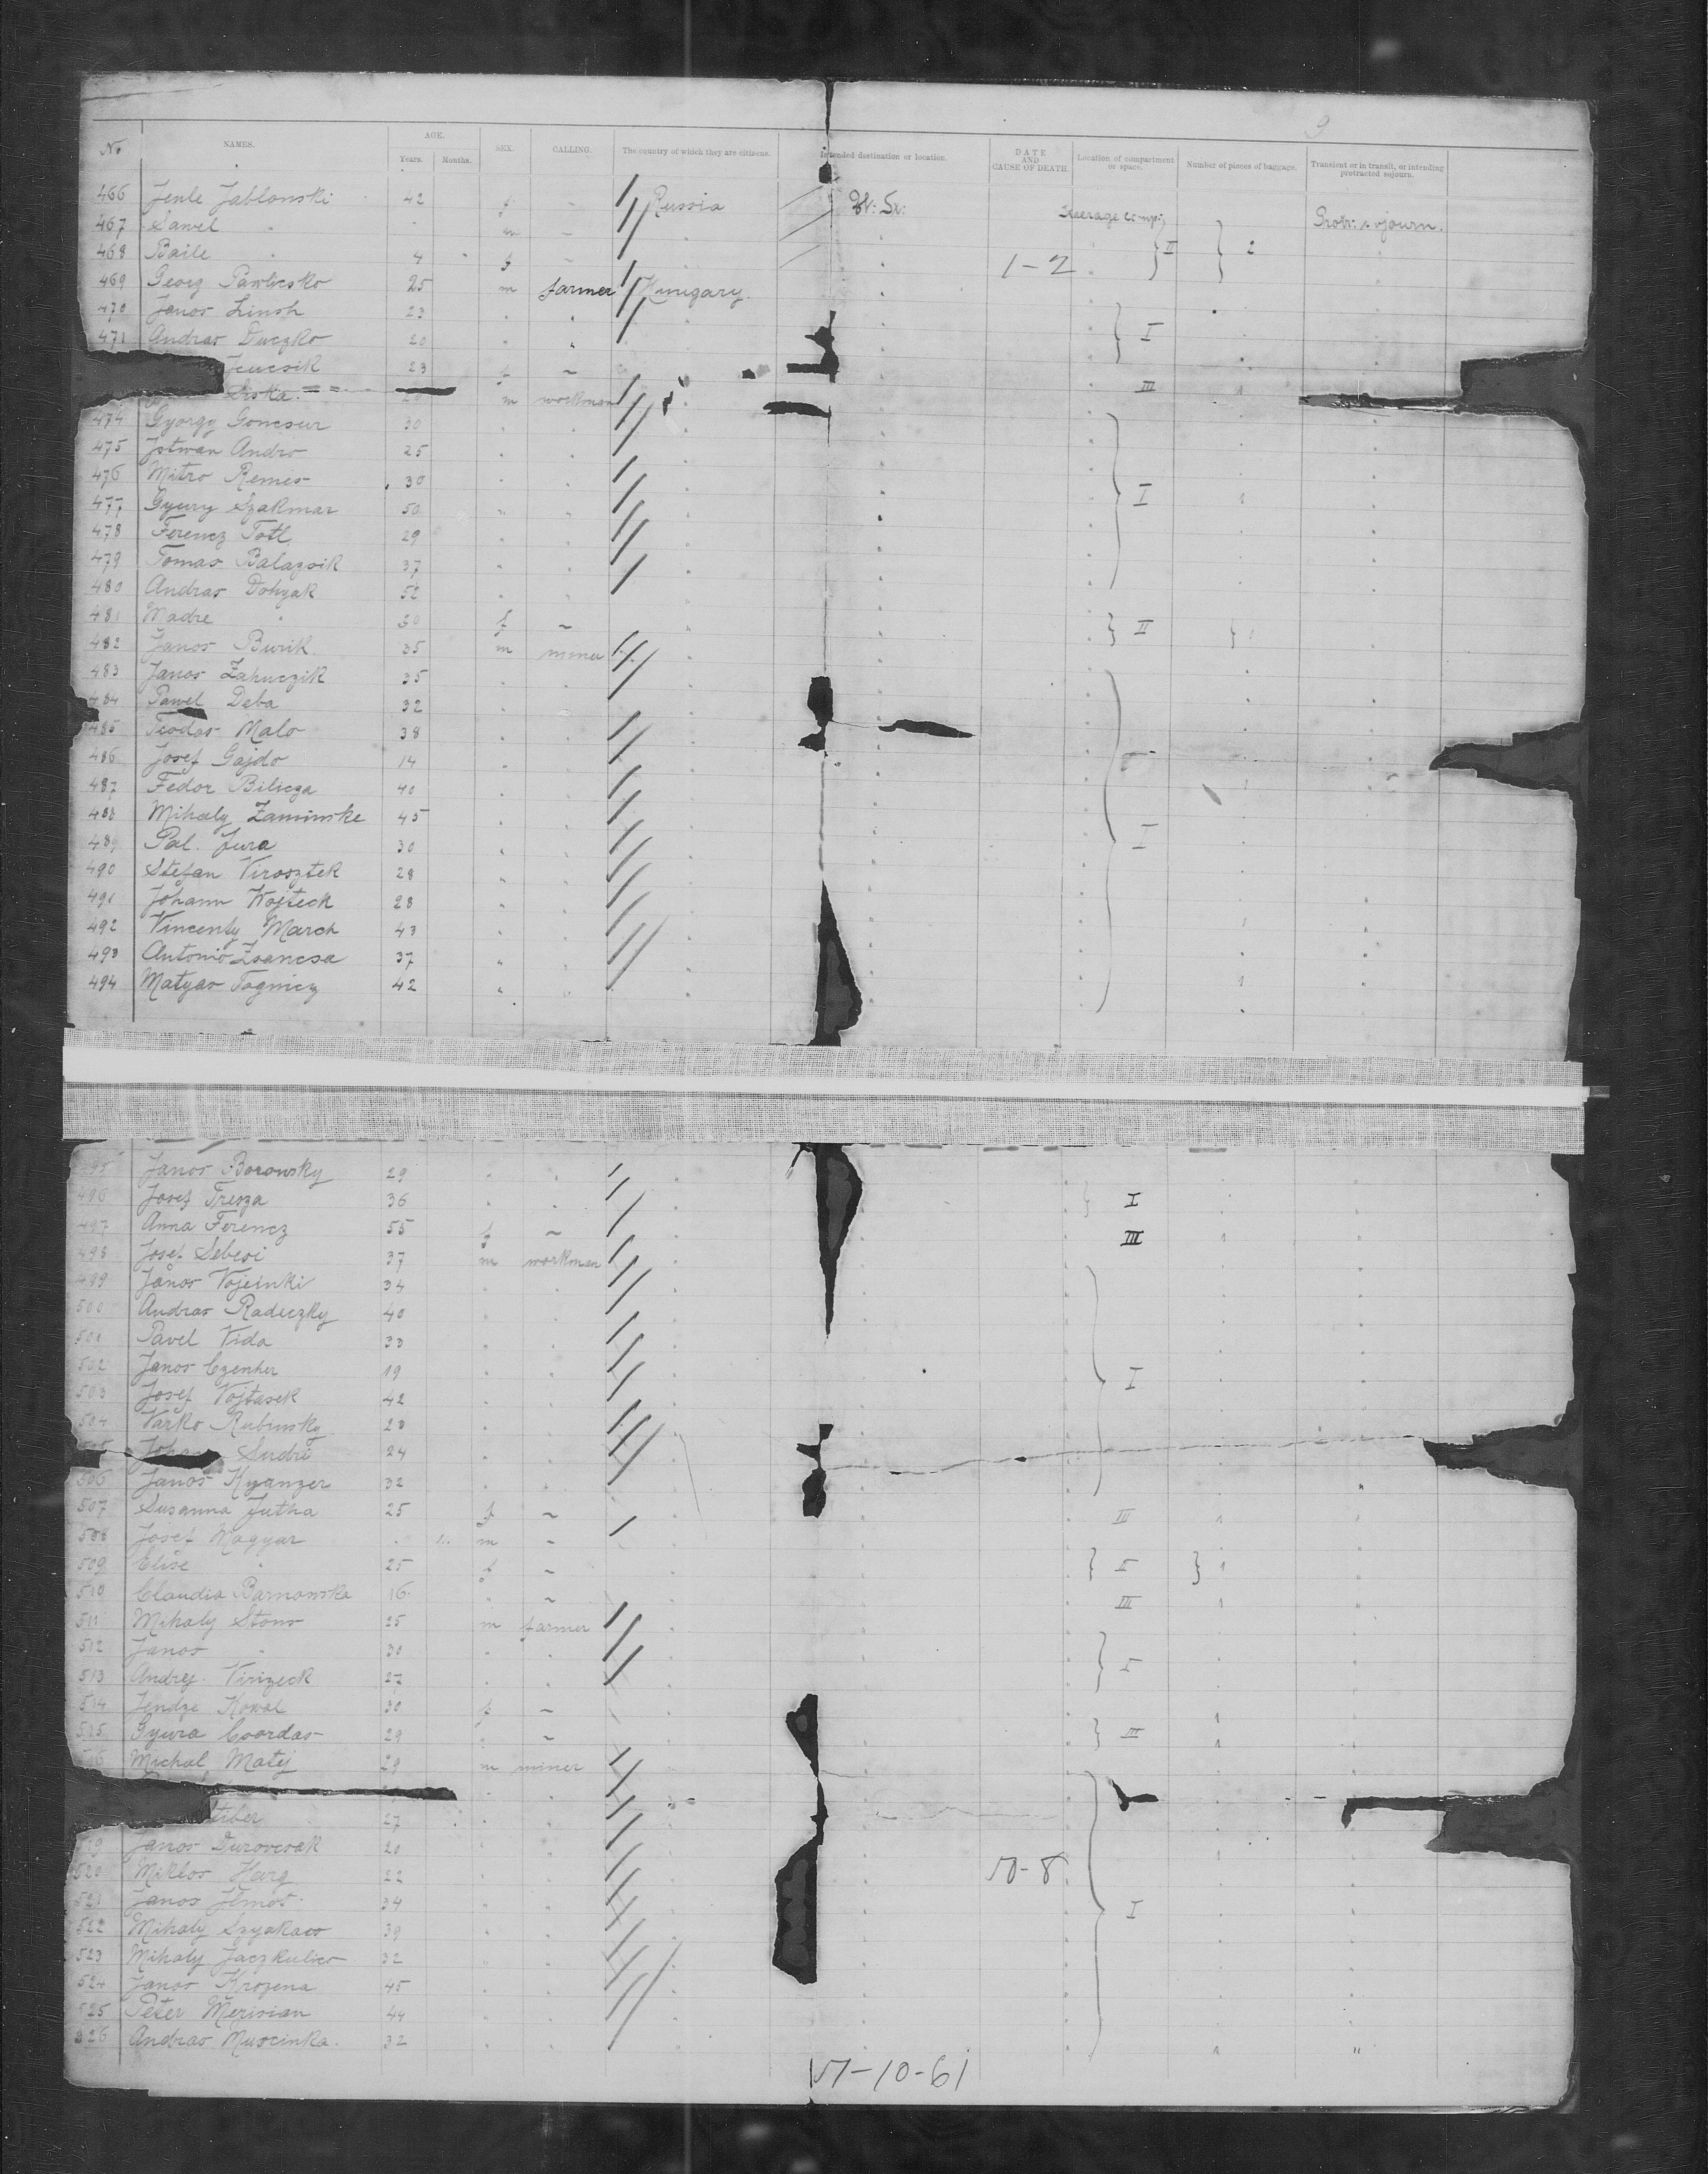 9
No NAMES. AGE. Years. Months. SEX. CALLING. The country of which they are citizens. Intended destination or location. DATE AND CAUSE OF DEATH. Location of compartment or space. Number of pieces of baggage. Transient or in transit, or intending protracted sojourn.
466 Jenle Jablonski 42 f - Russia Steerage comp.
467 Sawel " m - Protr. sojourn.
468 Baile " 4 f - 1-2 II 2
469 Georg Pawlicsko 25 m farmer Hungary
470 Janos Linsh 23 " "
471 Andras Duczko 20 " " I
Jencsik 23 f -
Siska m workman III 1
474 Gyorgy Goncsur 30 " "
475 Istwan Andro 25 " "
476 Mitro Remes 30 " "
477 Gyury Szakmar 50 " " I 1
478 Ferencz Totl 29 " "
479 Tomas Balazsik 37 " "
480 Andras Dohyak 52 " "
481 Madre " 30 f - II 1
482 Janos Burik 35 m miner
483 Janos Zahuczik 35 " "
484 Pawel Deba 32 "
485 Teodas Malo 38 " "
486 Josef Gajdo 14 "
487 Fedor Bilicza 40 " " 1
488 Mihaly Zaminske 45 " "
489 Pal. Jura 30 " " I
490 Stefan Virosztek 28 " "
491 Johann Wojteck 28 " "
492 Vincenty March 43 " " 1
493 Antonio Zsancsa 37 " "
494 Matyas Tognicz 42 " " 1
495 Janos Borowsky 29 " "
496 Josef Tresza 36 " " I
497 Anna Ferencz 55 f - III 1
498 Josef Sebesi 37 m workman
499 Janos Vojeinki 34 " "
500 Andras Radeczky 40 " "
501 Pavel Vida 33 " "
502 Janos Czenher 19 " " I
503 Josef Vojtasek 42 " "
504 Varko Rubinsky 28 " "
Johann Sudre 24 " "
506 Janos Kyanzer 32 " "
507 Susanna Jutha 25 f - III 1
508 Josef Magyar m -
509 Elise " 25 f - II 1
510 Claudia Barnowska 16 " - III 1
511 Mihaly Stons 25 m farmer
512 Janos " 30 " "
513 Andrej Virizeck 27 " " I
514 Jendze Kowal 30 f - 1
515 Gyura Coordas 29 " - III 1
516 Michal Matej 29 m miner
27 " "
519 Janos Durovcsak 20 " " 1
520 Miklos Harg 22 " " 50-8
521 Janos Ilmos 34 " " I
522 Mihaly Szyakacs 39 " "
523 Mihaly Jaczkulics 32 " "
524 Janos Krozena 45 " "
525 Peter Merisian 44 " "
526 Andras Muscinka. 32 " " 1 "
51-10-61